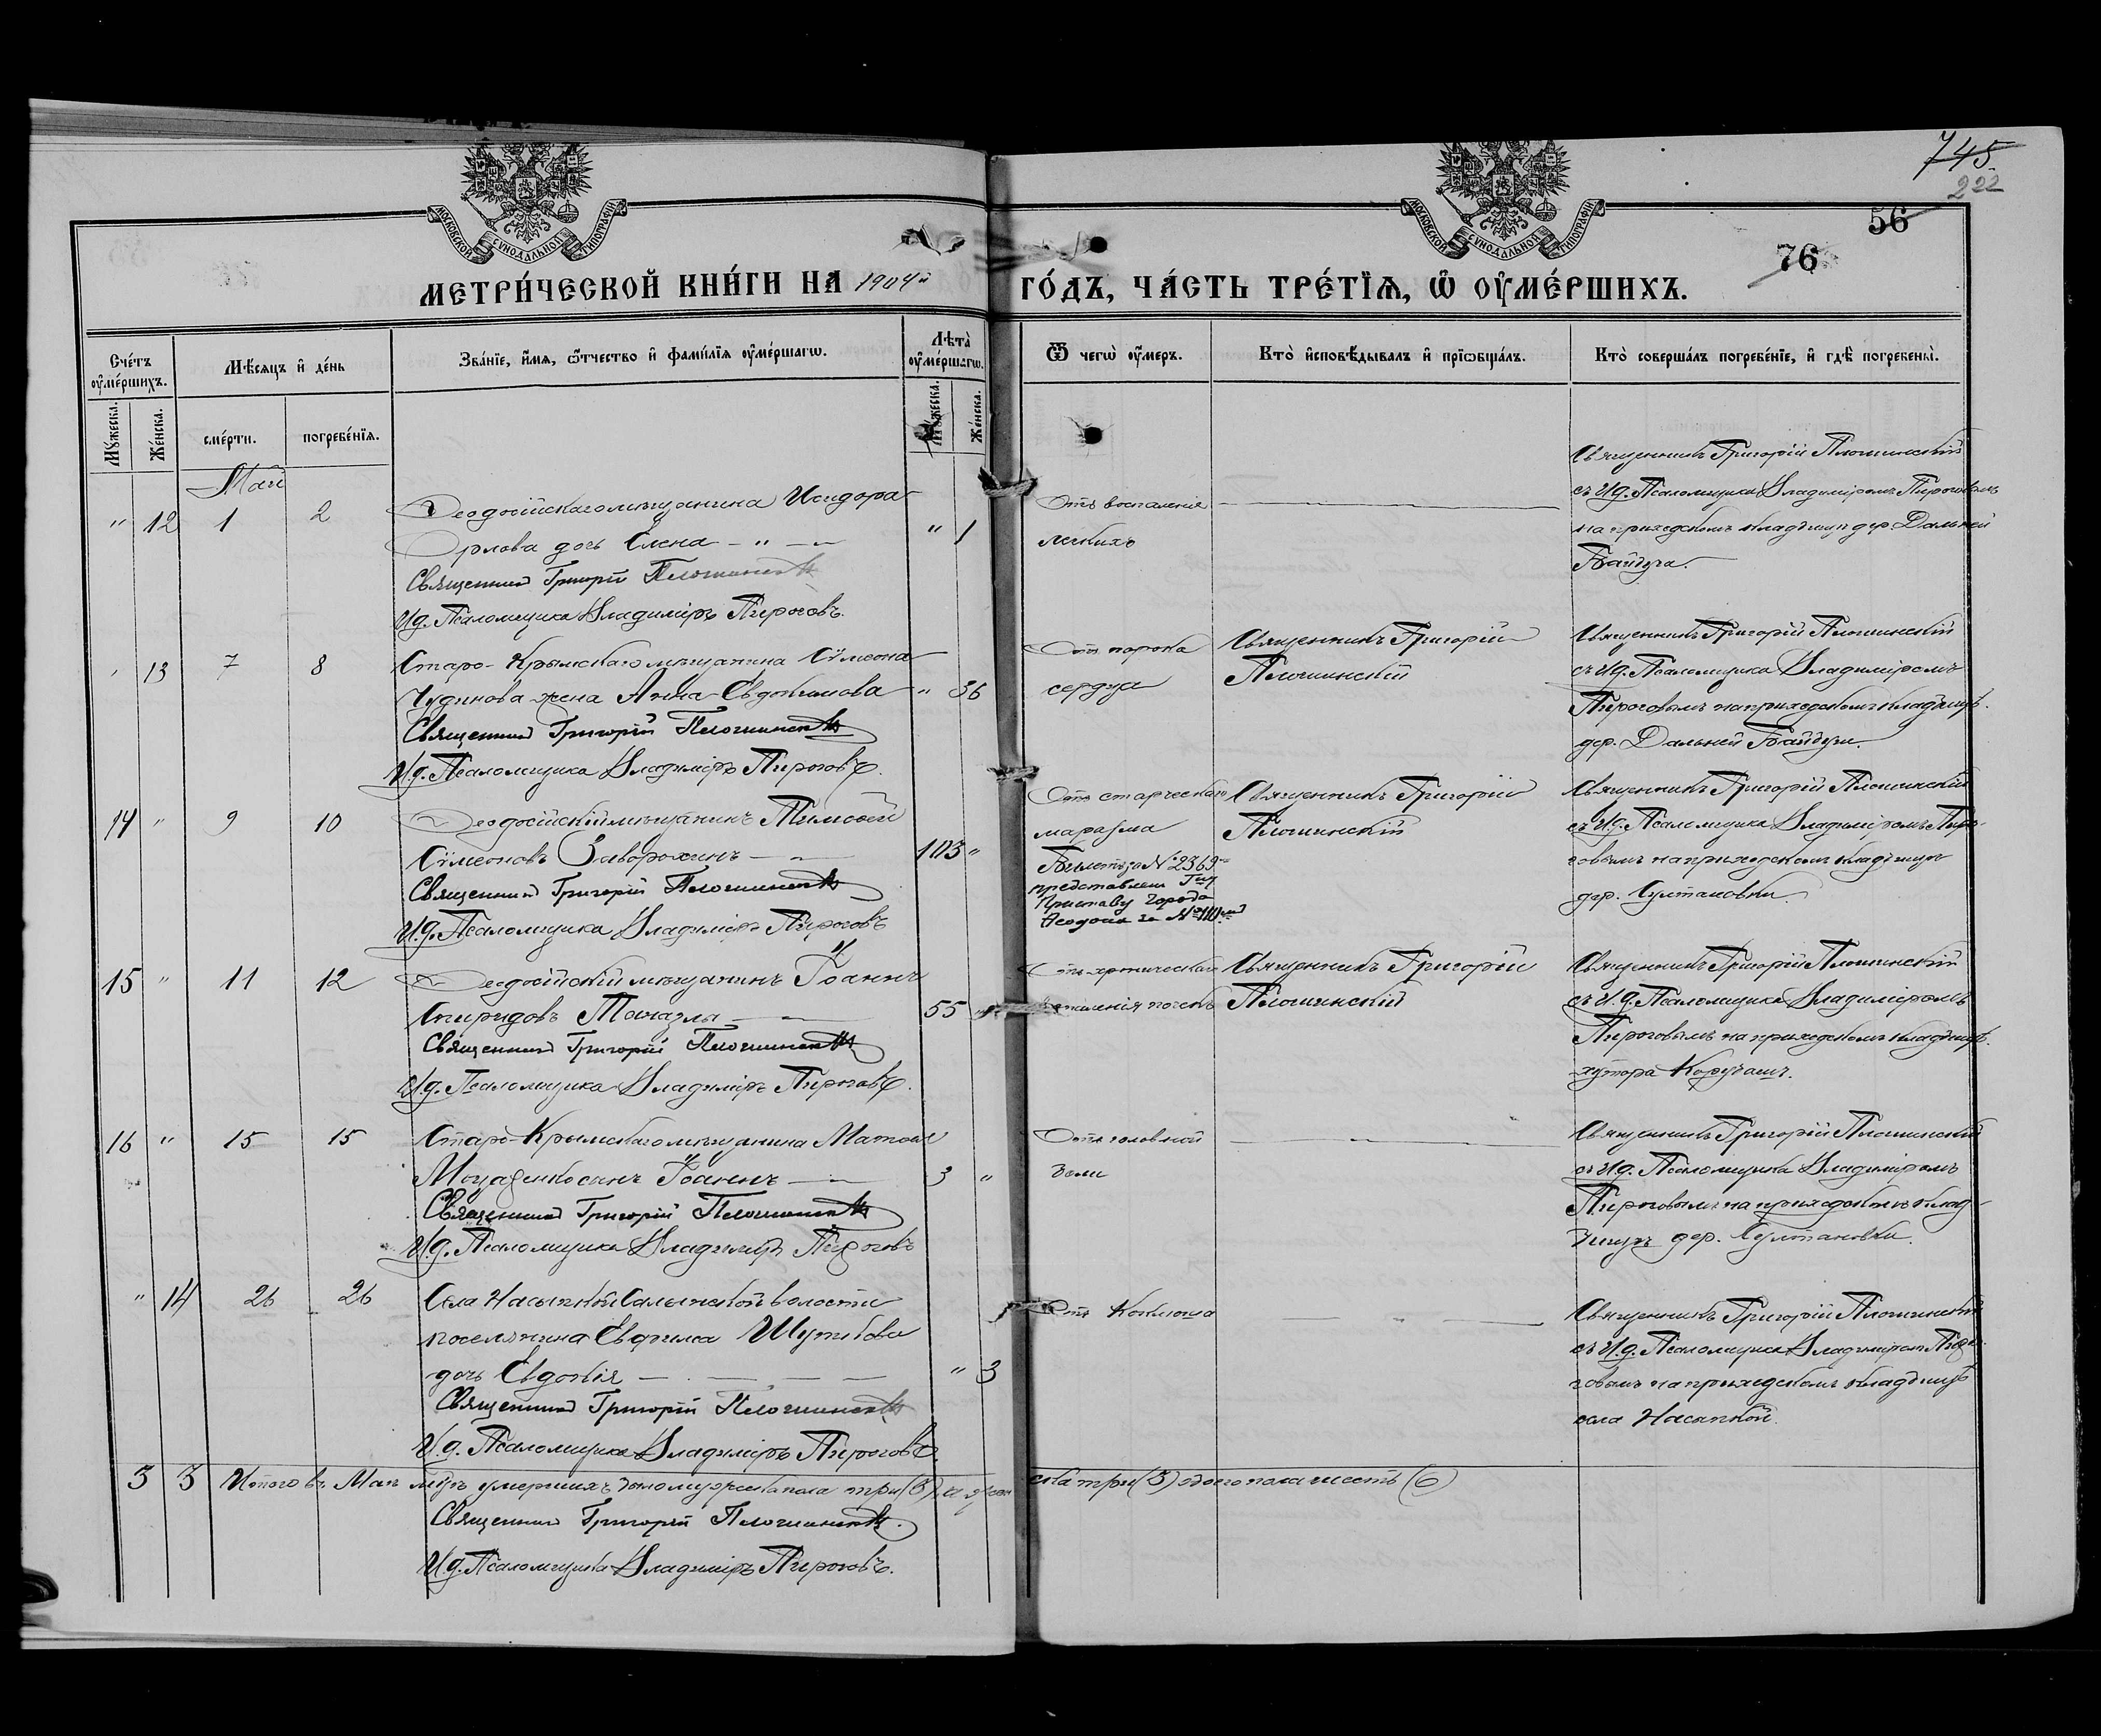 745
222
56
76
МОСКОВСКОЙ СѴНОДАЛЬНОЙ ТИПОГРАФІИ
МОСКОВСКОЙ СѴНОДАЛЬНОЙ ТИПОГРАФІИ
МЕТРИ́ЧЕСКОЙ КНИ́ГИ НА 1904й ГО́ДЪ, ЧА́СТЬ ТРЕ́ТЇѦ, Ѡ҆ ОУ҆МЕ́РШИХЪ.
Сче́тъ оу҆ме́ршихъ.
Мѣ́сѧцъ и҆ де́нь
Зва́нїе, и҆́мѧ, ѻ҆́тчество и҆ фами́лїѧ оу҆ме́ршагѡ.
Лѣта̀ оу҆ме́ршагѡ.
Ѿ чегѡ̀ оу҆́меръ.
Кто̀ и҆сповѣ́дывалъ и҆ прїѡбща́лъ.
Кто̀ соверша́лъ погребе́нїе, и҆ гдѣ̀ погребены̀.
Му́жеска.
Же́нска.
сме́рти.
погребе́нїѧ.
Му́жеска.
Же́нска.
Май
" 12 1 2
Ѳеодосійскаго мѣщанина Исидора
Орлова дочь Елена — " —
" 1
Священникъ Григорій Плошинскій
И.д. Псаломщика Владиміръ Пироговъ.
Отъ воспаленія
легкихъ
Священникъ Григорій Плошинскій
съ И.д. Псаломщика Владиміромъ Пироговымъ
на приходскомъ кладбищѣ дер. Дальней
Байбуга.
" 13 7 8
Старо-Крымскаго мѣщанина Сѵмеона
Чудинова жена Анна Евдокимова
" 36
Священникъ Григорій Плошинскій
И.д. Псаломщика Владиміръ Пироговъ.
Отъ порока
сердца
Священникъ Григорій
Плошинскій
Священникъ Григорій Плошинскій
съ И.д. Псаломщика Владиміромъ
Пироговымъ на приходскомъ кладбищѣ.
дер. Дальней Байбуги.
14 " 9 10
Ѳеодосійскій мѣщанинъ Тимоѳей
Сѵмеоновъ
103 "
Священникъ Григорій Плошинскій
И.д. Псаломщика Владиміръ Пироговъ
Отъ старческаго
маразма
Билетъ за № 2369
представленъ
Приставу города
Ѳеодосіи за №
Священникъ Григорій
Плошинскій
Священникъ Григорій Плошинскій
съ И.д. Псаломщика Владиміромъ Пиро-
говымъ на приходскомъ кладбищѣ
дер. Султановки.
15 " 11 12
Ѳеодосійскій мѣщанинъ Іоаннъ
Спиридовъ
55 "
Священникъ Григорій Плошинскій
И.д. Псаломщика Владиміръ Пироговъ.
Отъ хроническаго
воспаленія почекъ
Священникъ Григорій
Плошинскій
Священникъ Григорій Плошинскій
съ И.д. Псаломщика Владиміромъ
Пироговымъ на приходскомъ кладбищѣ.
хутора
16 " 15 15
Старо-Крымскаго мѣщанина
сынъ Іоаннъ —
3 "
Священникъ Григорій Плошинскій
И.д. Псаломщика Владиміръ Пироговъ
Отъ головной
боли
Священникъ Григорій Плошинскій
съ И.д. Псаломщика Владиміромъ
Пироговымъ на приходскомъ клад-
бищѣ дер. Султановки.
" 14 26 26
Села Насыпкой Салынской волости
поселянина Евфима
дочь Евдокія —
" 3
Священникъ Григорій Плошинскій
И.д. Псаломщика Владиміръ Пироговъ.
Отъ Коклюша
Священникъ Григорій Плошинскій
съ И.д. Псаломщика Владиміромъ Пиро-
говымъ на приходскомъ кладбищѣ
села Насыпкой.
3 3 Итого въ Маѣ м-цѣ умершихъ было мужска пола три (3), а жен-
ска три (3) обоего пола шесть (6)
Священникъ Григорій Плошинскій.
И.д. Псаломщика Владиміръ Пироговъ.